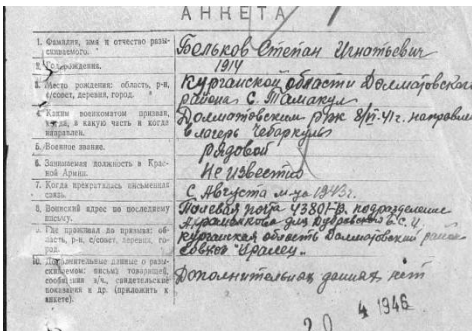 АНКЕТА
1. Фамилия, имя и отчество разы-
скиваемого.
Бельков Степан Игнатьевич
2. Год рождения.
1914
3. Место рождения: область, р-н,
с/совет, деревня, город.
Курганской области Долматовского
района с. Тамакул
4. Каким военкоматом призван,
когда, в какую часть и когда
направлен.
Долматовским РВК 8/VI-41г. направлен
в лагерь Чебаркуль
5. Военное звание.
рядовой
6. Занимаемая должность в Крас-
ной Армии.
Неизвестно
7. Когда прекратилась письменная
связь.
С Августа м-ца 1943г.
8. Воинский адрес по последнему
письму.
Полевая почта 43801-В, подразделение
для Дубровского С. И.
9. Где проживал до призыва: об-
ласть, р-н, с/совет, деревня, го-
род.
Курганская область Долматовский район
совхоз "Уралец"
10. Дополнительные данные о разы-
скиваемом: письма товарищей,
сообщения в/ч, свидетельские
показания и др. (приложить к
анкете).
Дополнительных данных нет
20 4 1946